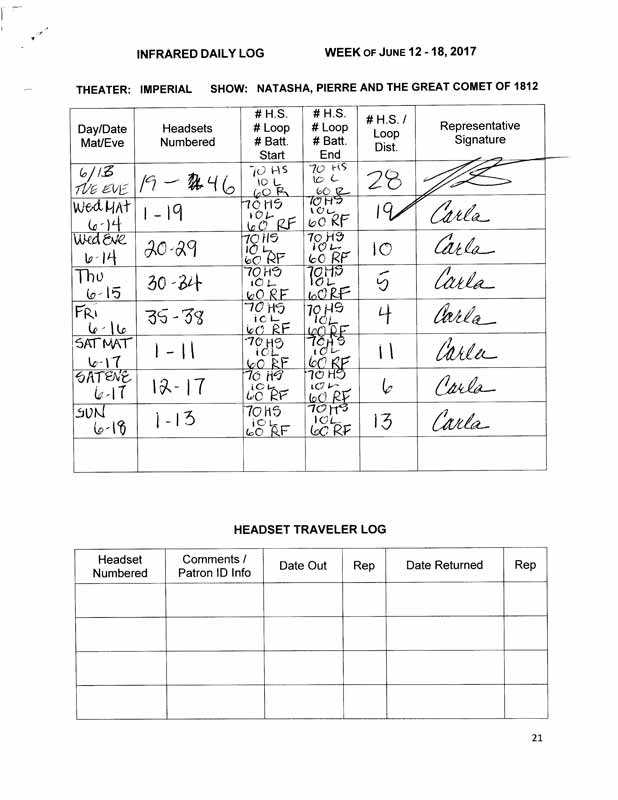 INFRARED DAILY LOG WEEK OF JUNE 12 - 18, 2017
THEATER: IMPERIAL SHOW: NATASHA, PIERRE AND THE GREAT COMET OF 1812
Day/Date Mat/Eve | Headsets Numbered | # H.S. # Loop # Batt. Start | # H.S. # Loop # Batt. End | # H.S. / Loop Dist. | Representative Signature
6/13 TUE EVE | 19 - 46 | 70 HS 10 L 60 R | 70 HS 10 L 60 R | 28
Wed MAT 6-14 | 1-19 | 70 HS 10 L 60 RF | 70 HS 10 L 60 RF | 19 | Carla
Wed Eve 6-14 | 20-29 | 70 HS 10 L 60 RF | 70 HS 10 L 60 RF | 10 | Carla
Thu 6-15 | 30-34 | 70 HS 10 L 60 RF | 70 HS 10 L 60 RF | 5 | Carla
FRi 6-16 | 35-38 | 70 HS 10 L 60 RF | 70 HS 10 L 60 RF | 4 | Carla
SAT MAT 6-17 | 1-11 | 70 HS 10 L 60 RF | 70 HS 10 L 60 RF | 11 | Carla
SAT EVE 6-17 | 12-17 | 70 HS 10 L 60 RF | 70 HS 10 L 60 RF | 6 | Carla
SUN 6-18 | 1-13 | 70 HS 10 L 60 RF | 70 HS 10 L 60 RF | 13 | Carla
HEADSET TRAVELER LOG
Headset Numbered | Comments / Patron ID Info | Date Out | Rep | Date Returned | Rep
21